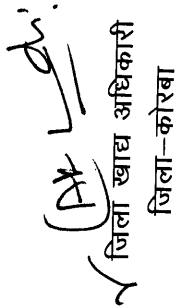 जिला खाद्य अधिकारी
जिला-कोरबा